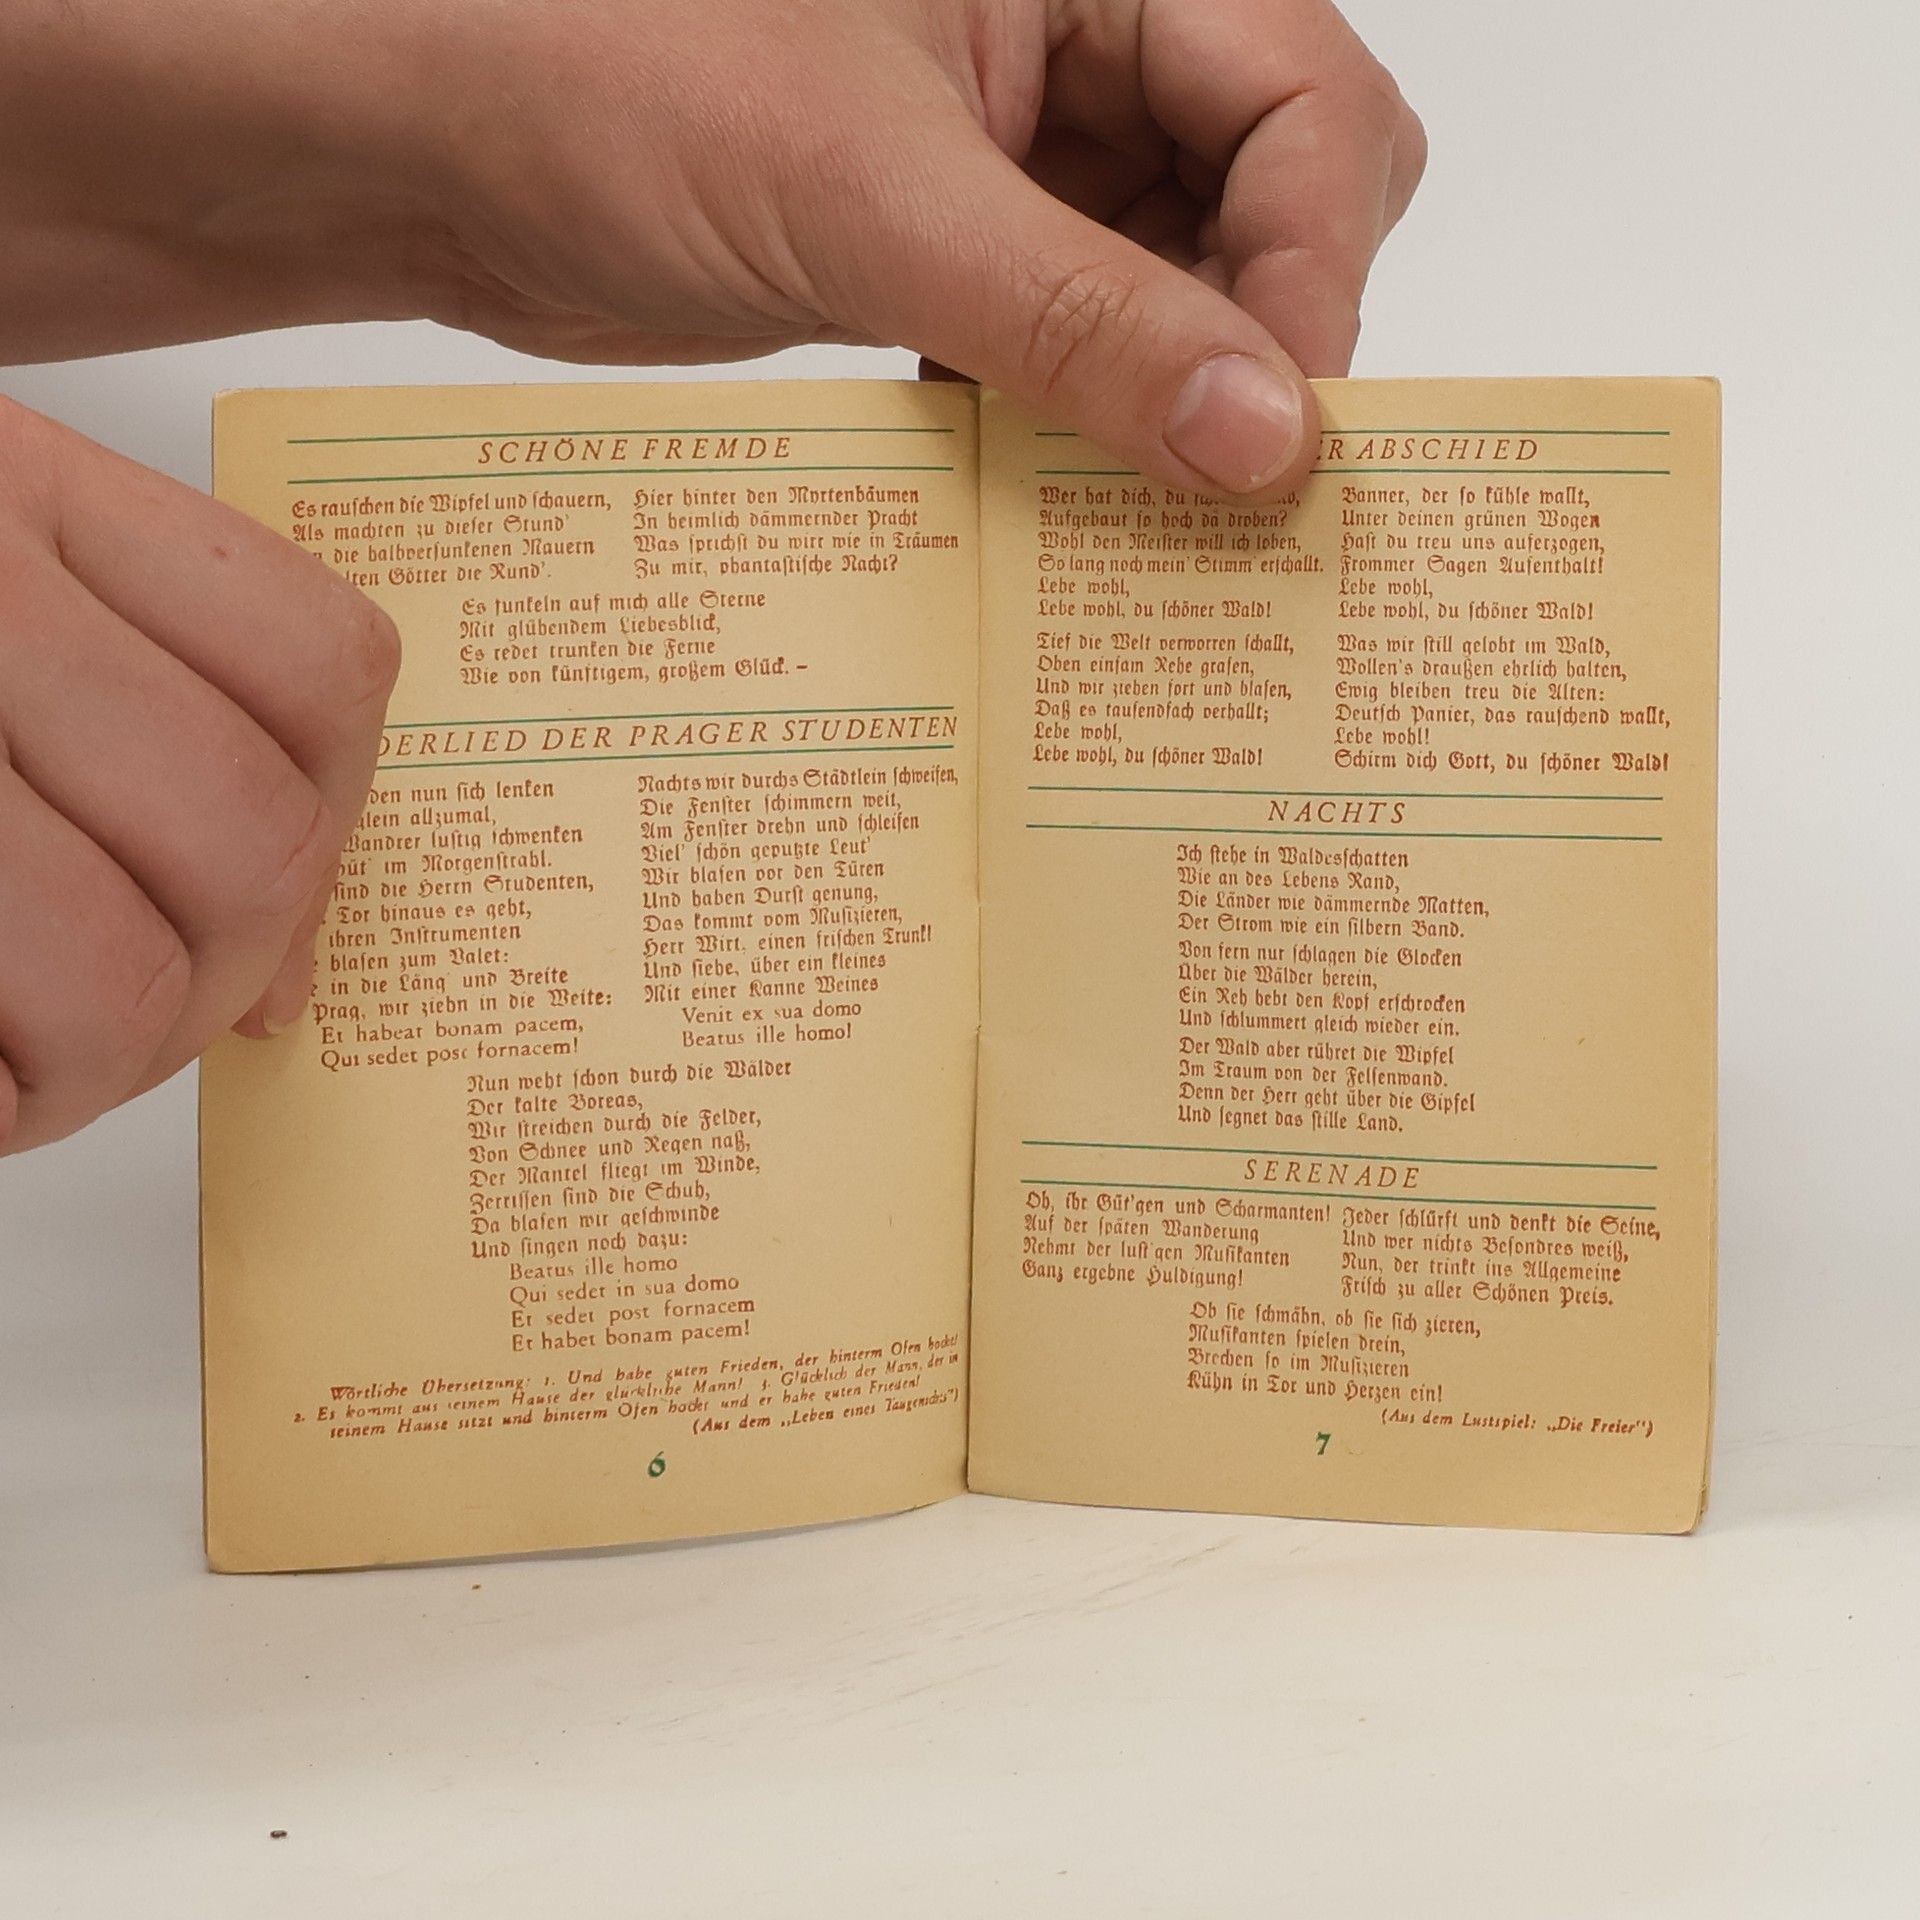 SCHÖNE FREMDE
Es rauschen die Wipfel und schauern,
Als machten zu dieser Stund'
die halbversunkenen Mauern
Götter die Rund'.
Hier hinter den Myrtenbäumen
In heimlich dämmernder Pracht
Was sprichst du wirr wie in Träumen
Zu mir, phantastische Nacht?
Es funkeln auf mich alle Sterne
Mit glühendem Liebesblick,
Es redet trunken die Ferne
Wie von künftigem, großem Glück. –
DER PRAGER STUDENTEN
nun sich lenken
allzumal,
Wandrer lustig schwenken
im Morgenstrahl.
sind die Herrn Studenten,
Tor hinaus es geht,
ihren Instrumenten
blasen zum Valet:
in die Läng' und Breite
Prag, wir ziehn in die Weite:
Et habeat bonam pacem,
Qui sedet post fornacem!
Nachts wir durchs Städtlein schweifen,
Die Fenster schimmern weit,
Am Fenster drehn und schleifen
Viel' schön geputzte Leut'
Wir blasen vor den Türen
Und haben Durst genung,
Das kommt vom Musizieren,
Herr Wirt, einen frischen Trunk!
Und siehe, über ein kleines
Mit einer Kanne Weines
Venit ex sua domo
Beatus ille homo!
Nun weht schon durch die Wälder
Der kalte Boreas,
Wir streichen durch die Felder,
Von Schnee und Regen naß,
Der Mantel fliegt im Winde,
Zerrissen sind die Schuh,
Da blasen wir geschwinde
Und singen noch dazu:
Beatus ille homo
Qui sedet in sua domo
Et sedet post fornacem
Et habet bonam pacem!
Wörtliche Übersetzung: 1. Und habe guten Frieden, der hinterm Ofen hockt!
2. Es kommt aus seinem Hause der glückliche Mann! 3. Glücklich der Mann, der in
seinem Hause sitzt und hinterm Ofen hockt und er habe guten Frieden!
(Aus dem „Leben eines Taugenichts")
6
ABSCHIED
Wer hat dich, du
Aufgebaut so hoch da droben?
Wohl den Meister will ich loben,
So lang noch mein' Stimm' erschallt.
Lebe wohl,
Lebe wohl, du schöner Wald!
Tief die Welt verworren schallt,
Oben einsam Rehe grasen,
Und wir ziehen fort und blasen,
Daß es tausendfach verhallt;
Lebe wohl,
Lebe wohl, du schöner Wald!
Banner, der so kühle wallt,
Unter deinen grünen Wogen
Hast du treu uns auferzogen,
Frommer Sagen Aufenthalt!
Lebe wohl,
Lebe wohl, du schöner Wald!
Was wir still gelobt im Wald,
Wollen's draußen ehrlich halten,
Ewig bleiben treu die Alten:
Deutsch Panier, das rauschend wallt,
Lebe wohl!
Schirm dich Gott, du schöner Wald!
NACHTS
Ich stehe in Waldesschatten
Wie an des Lebens Rand,
Die Länder wie dämmernde Matten,
Der Strom wie ein silbern Band.
Von fern nur schlagen die Glocken
Über die Wälder herein,
Ein Reh hebt den Kopf erschrocken
Und schlummert gleich wieder ein.
Der Wald aber rühret die Wipfel
Im Traum von der Felsenwand.
Denn der Herr geht über die Gipfel
Und segnet das stille Land.
SERENADE
Oh, ihr Güt'gen und Scharmanten!
Auf der späten Wanderung
Nehmt der lust'gen Musikanten
Ganz ergebne Huldigung!
Jeder schlürft und denkt die Seine,
Und wer nichts Besondres weiß,
Nun, der trinkt ins Allgemeine
Frisch zu aller Schönen Preis.
Ob sie schmähn, ob sie sich zieren,
Musikanten spielen drein,
Brechen so im Musizieren
Kühn in Tor und Herzen ein!
(Aus dem Lustspiel: „Die Freier")
7